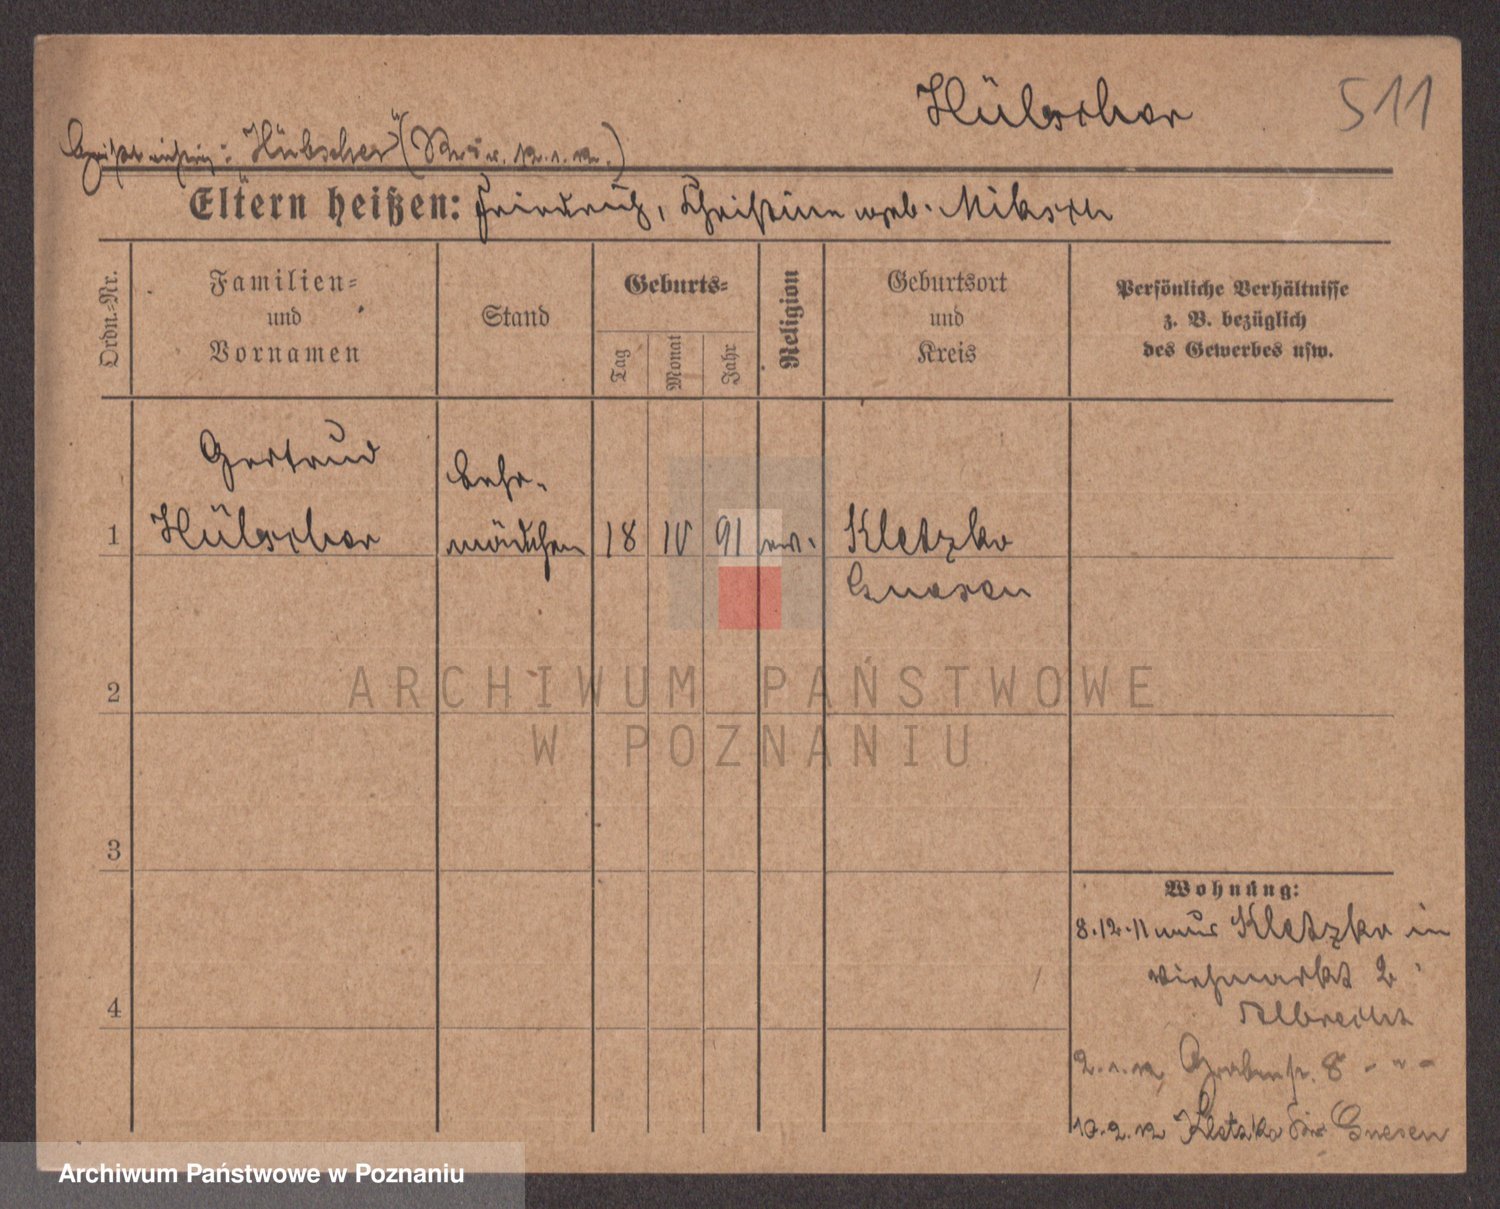 Hülscher 511
heißt richtig: "Hübscher"
Eltern heißen: Friedrich, Christine geb. Miksch
Ordn.-Nr.
Familien-
und
Vornamen
Stand
Geburts-
Tag
Monat
Jahr
Religion
Geburtsort
und
Kreis
Persönliche Verhältnisse
z. B. bezüglich
des Gewerbes usw.
Gertrud Lehr-
1 Hülscher mädchen 18 IV 91 ev. Kletzko
Gnesen
2
ARCHIWUM PAŃSTWOWE
W POZNANIU
3
Wohnung:
8.12.11 aus Kletzko in
Viehmarkt 2
Albrecht
4
2.1.12 Grabenstr. 8 - " -
10.2.12 Kletzko Kr Gnesen
Archiwum Państwowe w Poznaniu